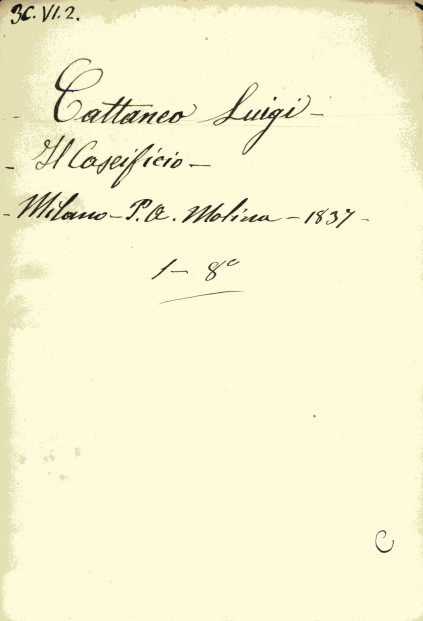 3C. VI. 2.
- Cattaneo Luigi -
- Il Caseificio -
- Milano - P. A. Molina - 1837 -
1 - 8°
C